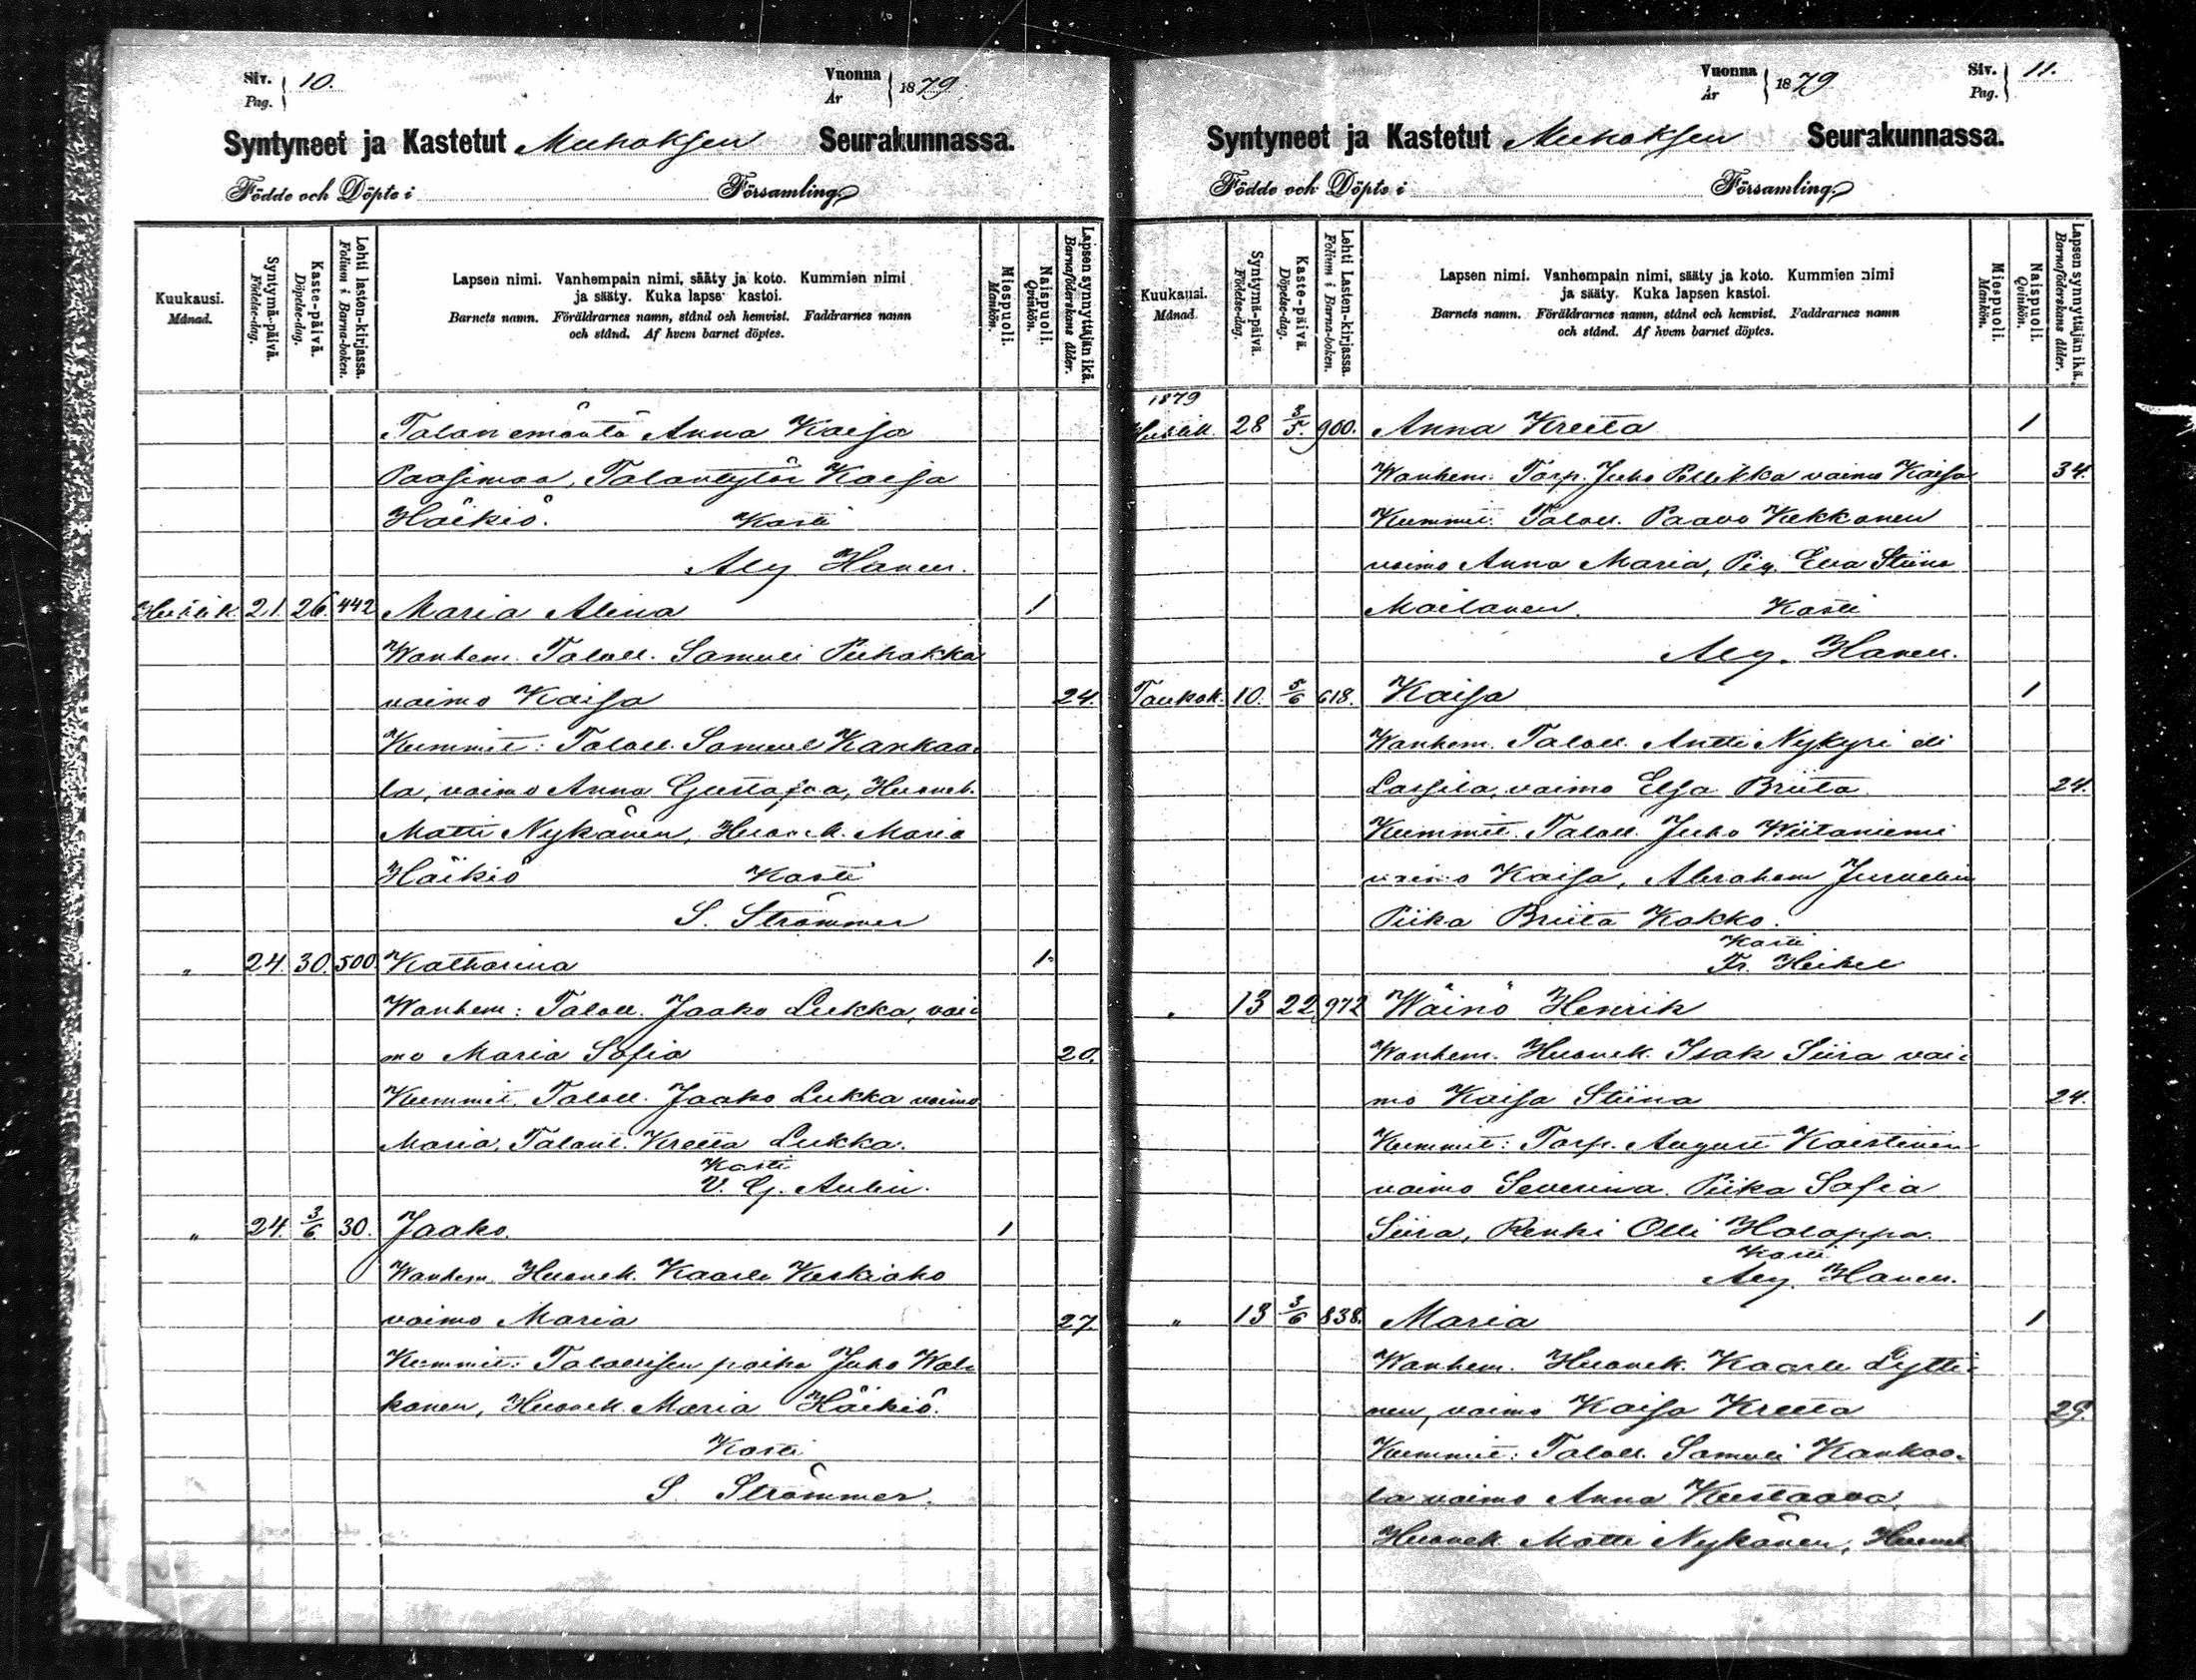 Siv. Pag. 10.
Vuonna År 1879
Syntyneet ja Kastetut Muhoksen Seurakunnassa.
Födde och Döpte i Församling.
Kuukausi. Månad.
Syntymä-päivä. Födelse-dag.
Kaste-päivä. Döpelse-dag.
Lehti lasten-kirjassa. Folium i Barna-boken.
Lapsen nimi. Vanhempain nimi, sääty ja koto. Kummien nimi
ja sääty. Kuka lapse kastoi.
Barnets namn. Föräldrarnes namn, stånd och hemvist. Faddrarnes namn
och stånd. Af hvem barnet döptes.
Miespuoli. Mankön.
Naispuoli. Qvinkön.
Lapsen synnyttäjän ikä. Barnaföderskans ålder.
Talon emäntä Anna Kaisa
Paasimaa, Talontytär Kaisa
Häikiö. Kasti
Alex. Haven.
Huhtik. 21. 26. 442 Maria Alina 1
Wanhem. Taloll. Samuli Pirhakka
vaimo Kaisa 24.
Kummit: Taloll. Samuel Kankaa-
la, vaimo Anna Gustafva, Huonek.
Matti Nykänen, Huonek. Maria
Häikiö Kasti
S. Strömmer
" 24. 30. 500. Katharina 1
Wanhem: Taloll. Jaako Lukka, vai-
mo Maria Sofia 20.
Kummit. Taloll. Jaako Lukka vaimo
Maria, Talont. Kreeta Lukka.
Kasti
V. G. Aulin.
" 24. 3/6 30. Jaako. 1
Wanhem. Huonek. Kaarle Keskiaho
vaimo Maria 27.
Kummit: Talollisen poika Juho Wal-
konen, Huonek. Maria Häikiö.
Kasti
S. Strömmer.
Vuonna År 1879
Siv. Pag. 11.
Syntyneet ja Kastetut Muhoksen Seurakunnassa.
Födde och Döpte i Församling.
Kuukausi. Månad
Syntymä-päivä. Födelse-dag.
Kaste-päivä. Döpelse-dag.
Lehti Lasten-kirjassa. Folium i Barna-boken.
Lapsen nimi. Vanhempain nimi, sääty ja koto. Kummien nimi
ja sääty. Kuka lapsen kastoi.
Barnets namn. Föräldrarnes namn, stånd och hemvist. Faddrarnes namn
och stånd. Af hvem barnet döptes.
Miespuoli. Mankön.
Naispuoli. Qvinkön.
Lapsen synnyttäjän ikä. Barnaföderskans ålder.
1879
Huhtik. 28 3/5. 900. Anna Kreeta 1
Wanhem. Torp. Juho Pellikka vaimo Kaisa 34.
Kummit: Taloll. Paavo Kekkonen
vaimo Anna Maria, Pig. Eva Stiina
Mailanen. Kasti
Alex. Haven.
Toukok. 10. 5/6 618. Kaisa 1
Wanhem. Taloll. Antti Nykyri eli
Lassila, vaimo Elsa Briita 24.
Kummit. Taloll. Juho Wiitaniemi
vaimo Kaisa, Abraham Jurvelin
Piika Briita Kokko.
Kasti
Fr. Heikel
" 13 22 972 Wäinö Henrik
Wanhem. Huonek. Isak Siira vai-
mo Kaisa Stiina 24.
Kummit: Torp. August Koistinen
vaimo Severina. Piika Sofia
Siira, Renki Olli Holappa.
Kasti
Alex. Haven.
" 13 3/6 838. Maria 1
Wanhem. Huonek. Kaarle Lytti-
nen, vaimo Kaisa Kreeta 29.
Kummit: Taloll. Samuli Kankaa-
la vaimo Anna Kustaava,
Huonek. Matti Nykänen, Huonek